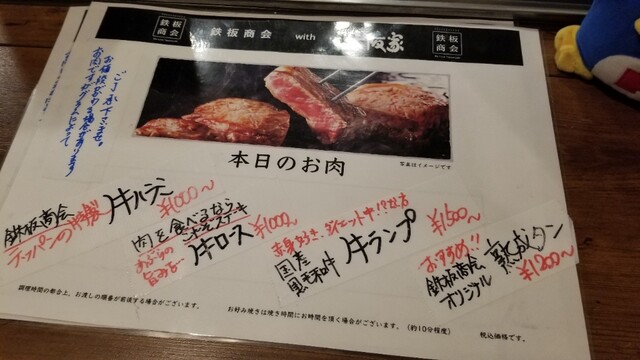 鉄板商会
鉄板商会 with
阪家
鉄板商会
ご了承下さいませ。
お値段変わる場合があります
お肉です。
本日のお肉
写真はイメージです
鉄板商会
テッパンの特製
牛ハラミ
¥1000〜
肉を食べるなら
ステーキ
あぶらの
旨み
牛ロース
¥1000〜
赤身好き、ダイエット中!?な方
国産
黒毛和牛
牛ランプ
¥1500〜
おすすめ!!
鉄板商会
オリジナル
熟成タン
¥1200〜
調理時間の都合上、お渡しの順番が前後する場合がございます。
お好み焼きは焼き時間にお時間を頂く場合がございます。(約10分程度)
税込価格です。